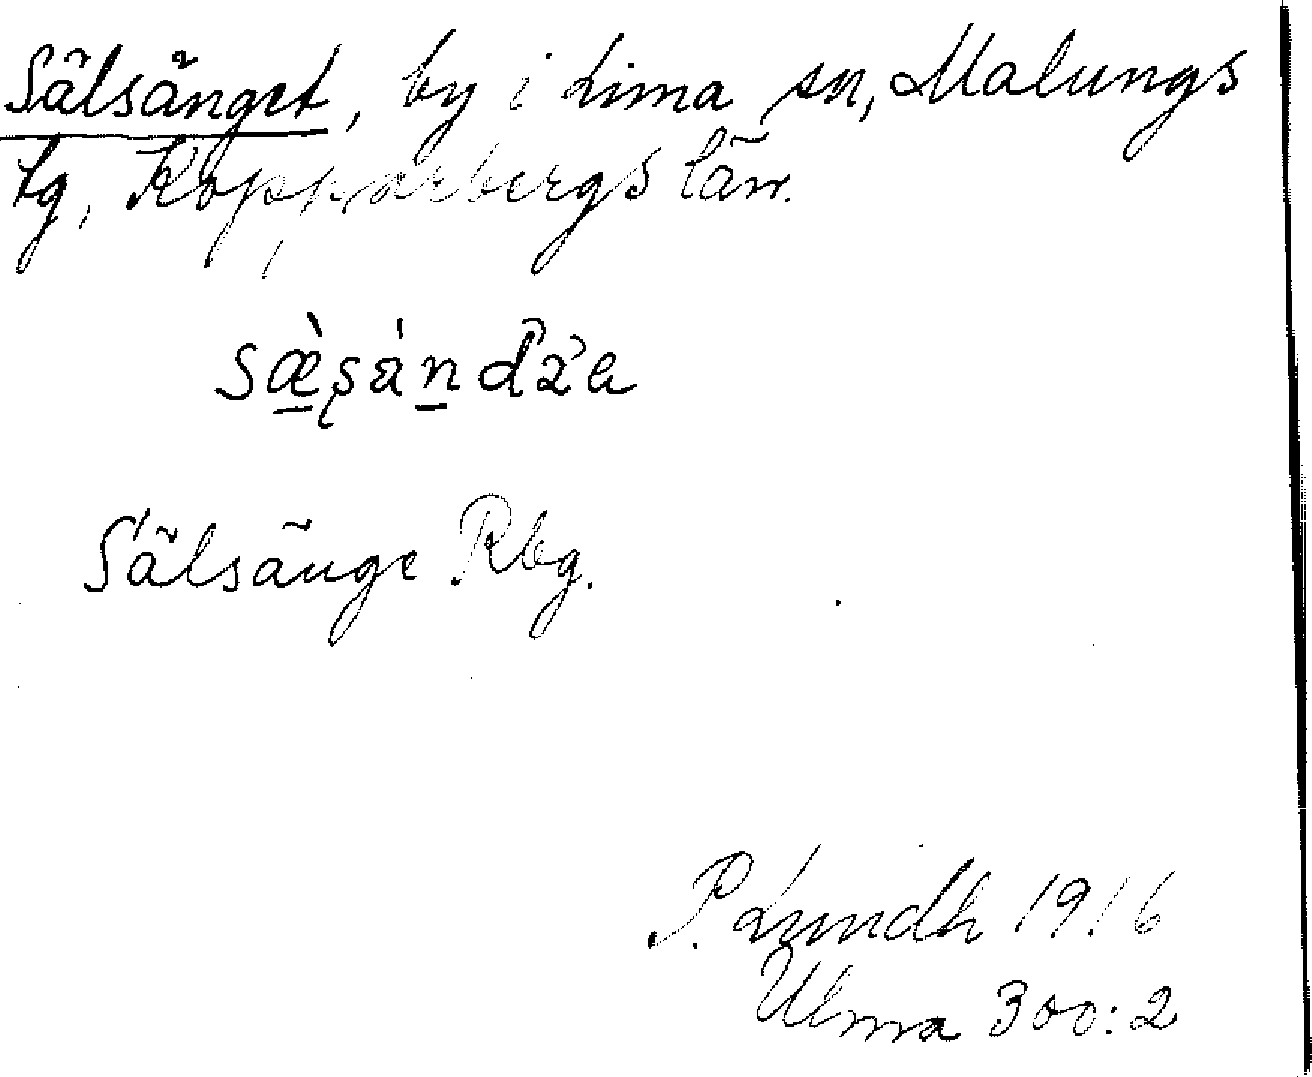 Sälsänget, by i Lima sn, Malungs
tg, Kopparbergs län.
sæ̀sándza
Sälsänge Rbg.
P. Lundh 1916
Ulma 300:2